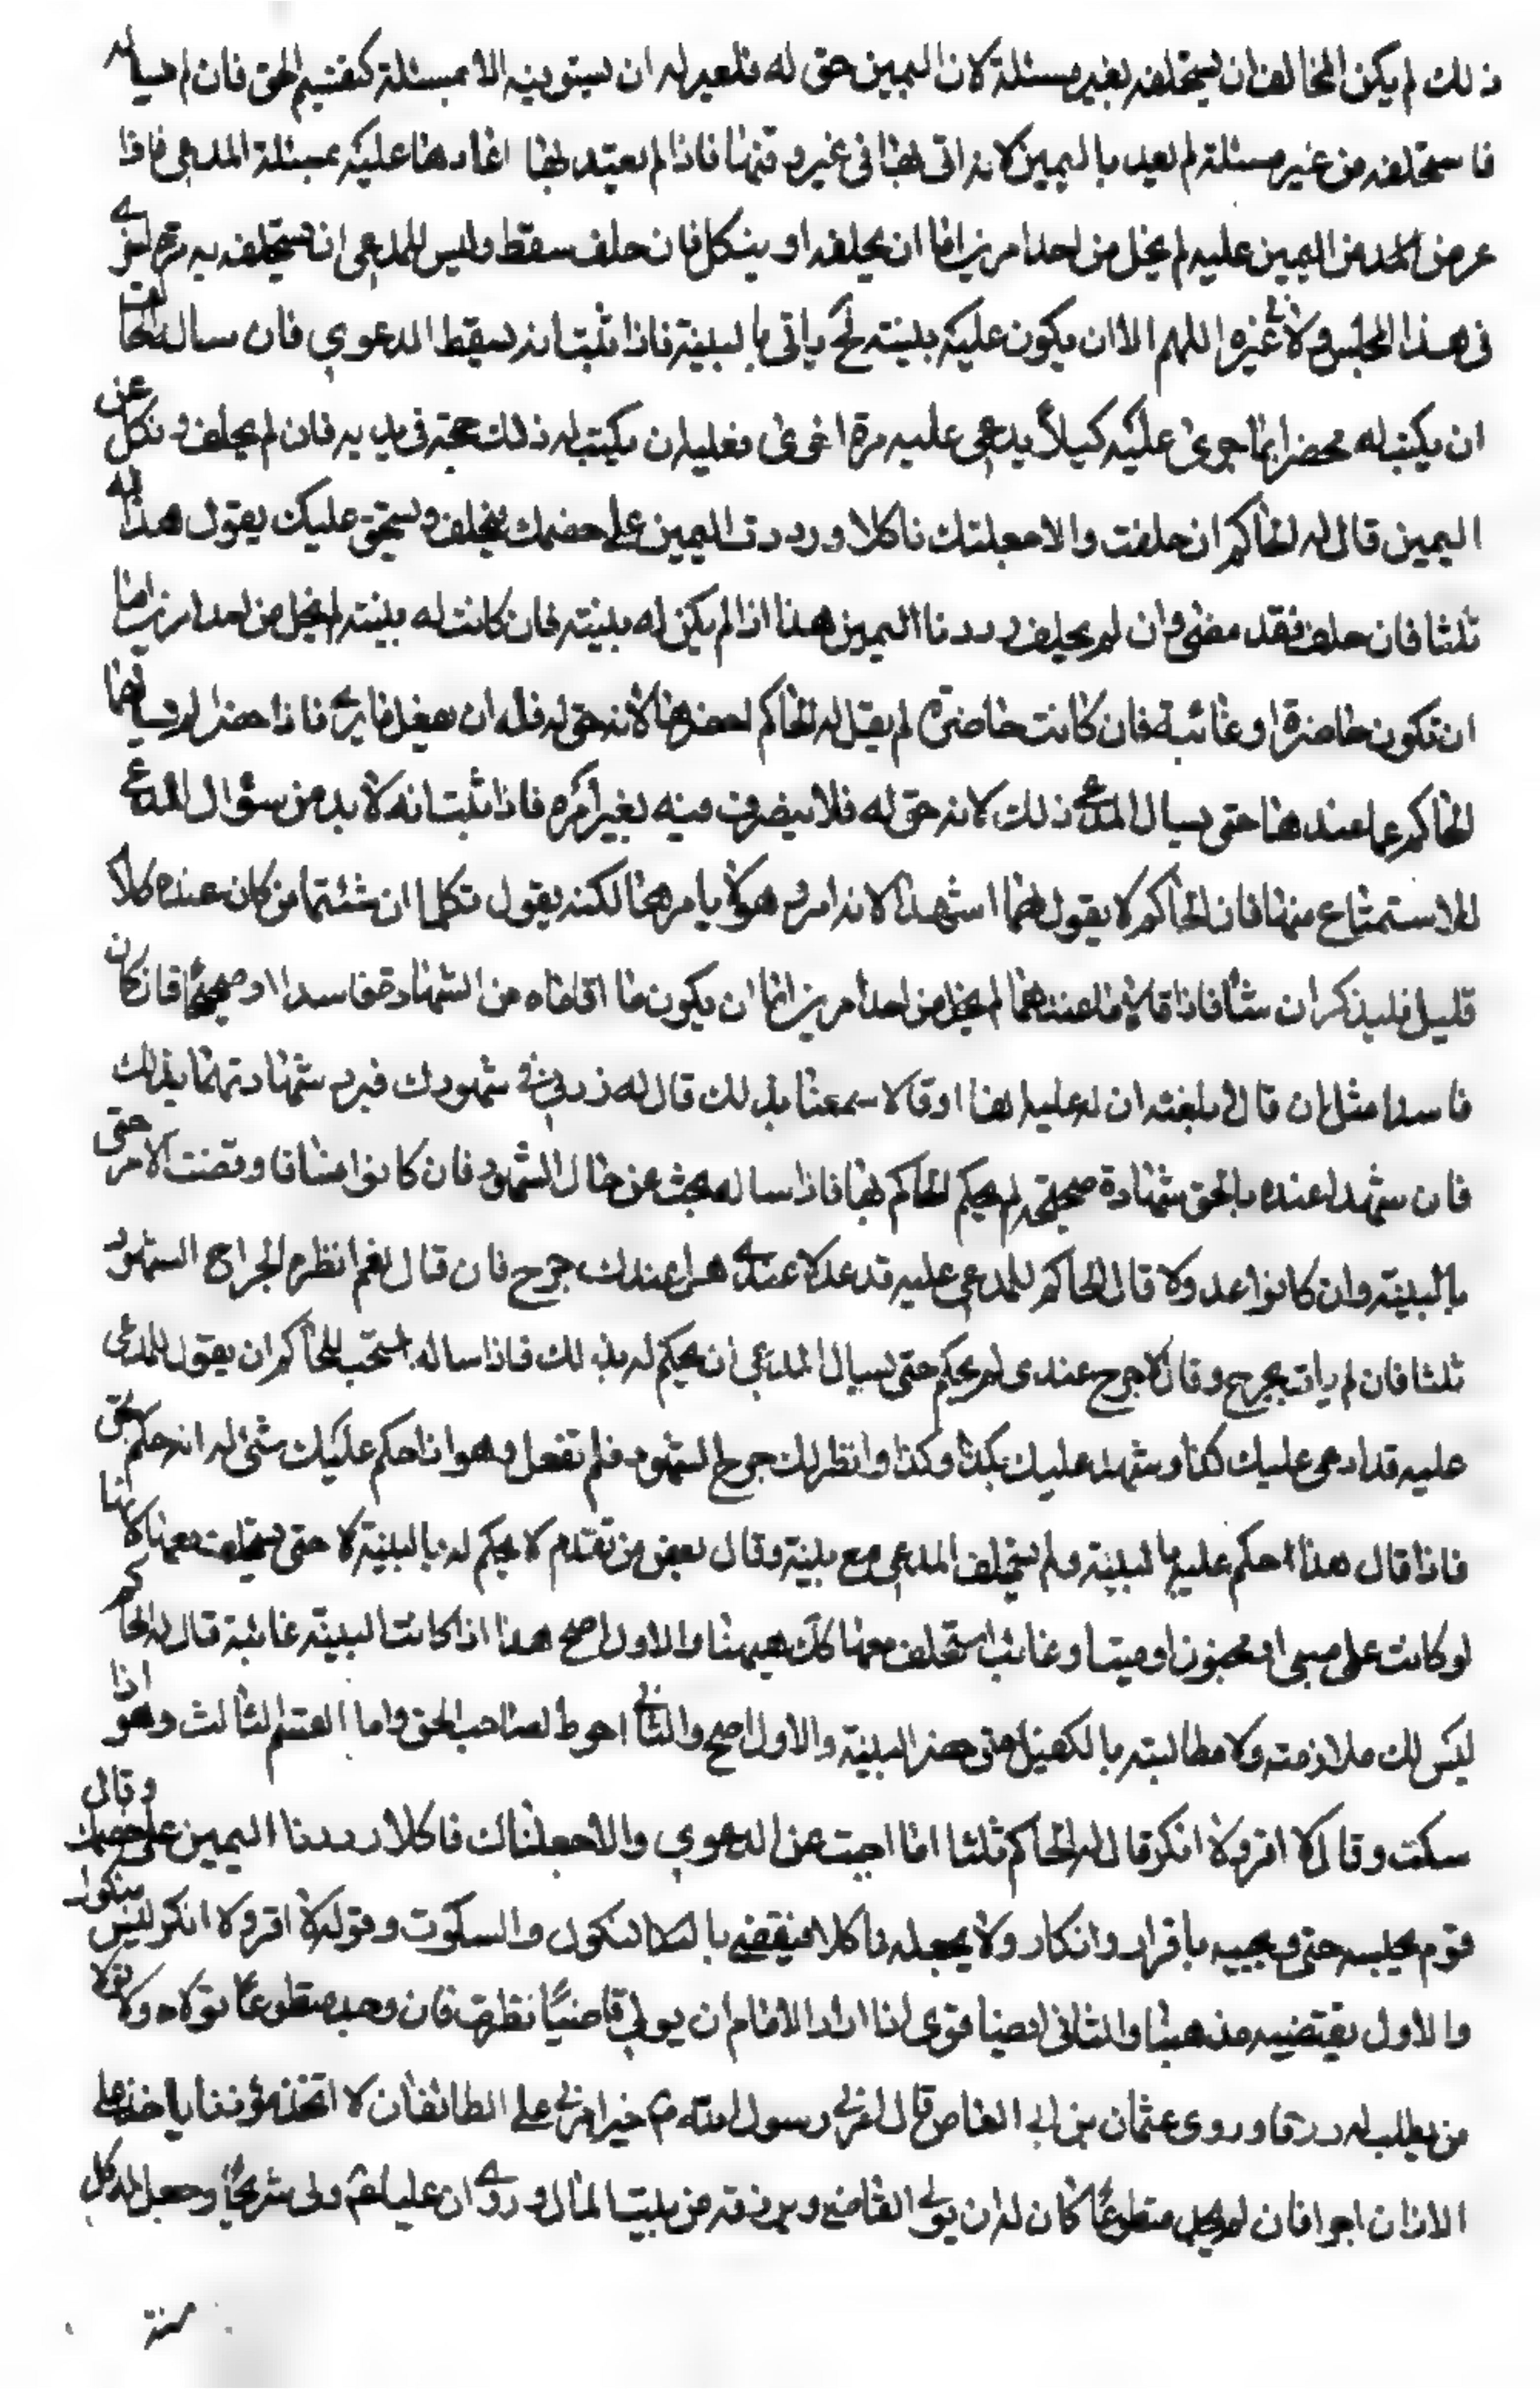 ذلك لم يكن للحاكم ان يستحلفه بغير مسئلة لان اليمين حق له فليس له ان يستوفيه الا بمسئلة كنفس الحق فان لم يساله
فاستحلفه من غير مسئلة لم يعتد باليمين لانه اتى بها في غير وقتها فاذا لم يعتد بها اعادها عليه بمسئلة المدعي فاذا
عرض اليمين عليه لم يخل من احد امرين اما ان يحلف او ينكل فان حلف سقط وليس للمدعي ان يستحلفه به مرة اخرى
في هذا المجلس ولا غيره اللهم الا ان يكون عليه بينته ياتي بالبينة فاذا ثبت انه يسقط الدعوى فان سال الحاكم
ان يكتب له محضرا بما جرى عليه كيلا يدعي عليه مرة اخرى فعليه ان يكتب له ذلك حجة في يديه فان لم يحلف ونكل عن
اليمين قال له الحاكم ان حلفت والا جعلتك ناكلا ورددت اليمين على خصمك فيحلف ويستحق عليك يقول هذا له
ثلثا فان حلف فقد مضى وان لم يحلف رددنا اليمين هذا اذا لم يكن له بينته فان كانت له بينته لم يخل من احد امرين اما
ان تكون حاضرة او غائبة فان كانت حاضرة لم يقل له الحاكم احضرها لانه حق له فله ان يفعل ما يرى فاذا حضرا لم يسالهما
الحاكم عما عندهما حتى يسال المدعي ذلك لانه حق له فلا يتصرف فيه بغير امره فاذا ثبت انه لا بد من سؤال المدعي
للاستمتاع منهما فان الحاكم لا يقول لهما اشهدا لانه امر وهو لا يامرهما لكنه يقول تكلما ان شئتما من كان عنده كلام
قليل فليذكر ان شاء فاذا قالا ما عندهما لم يخل من احد امرين اما ان يكون ما اقاماه من الشهادة فاسدا او صحيحا فان كان
فاسدا مثل ان قالا بلغنا ان له عليه هذا او قالا سمعنا بذلك قال له زدني في شهودك فيرد شهادتهما بذلك
فان شهدا عنده بالحق شهادة صحيحة لم يحكم الحاكم بها فاذا ساله بحث عن حال الشهود فان كانوا فساقا وقفت الامر حتى
بالبينة وان كانوا عدولا قال الحاكم للمدعي عليه قد عدلا عندي هل عندك جرح فان قال نعم انظره لجراح الشهود
ثلثا فان لم يات بجرح وقال لا جرح عندي لم يحكم حتى يسال المدعي ان يحكم له بذلك فاذا ساله استحب للحاكم ان يقول للمدعى
عليه قد ادعى عليك كذا وشهد عليك بكذا وكذا وانظر لك جرح الشهود فلم تفعل وهو انا احكم عليك شئ له انه حكم بحق
فاذا قال هذا احكم عليه بالبينة ولم يستحلف المدعي مع بينة وقال بعض من تقدم لا يحكم له بالبينة لا حتى يستحلفه معها كانها
لو كانت على صبي او مجنون او ميت او غائب استحلف معها كك هيهنا والاول اصح هذا اذا كانت البينة غائبة قال له الحاكم
ليس لك ملازمته ولا مطالبته بالكفيل متى حضر البينة والاول اصح والثاني احوط لصاحب الحق واما القسم الثالث وهو اذا
سكت وقال لا اقر ولا انكر قال له الحاكم ثلثا اما اجبت عن الدعوى والا جعلناك ناكلا رددنا اليمين على خصمك وقال
قوم يحبسه حتى يجيبه باقرار وانكار ولا يجعله ناكلا فيقضي بالنكول والسكوت وقوله لا اقر ولا انكر ليس بنكول
والاول يقتضيه مذهبنا والثاني ايضا قوي اذا اراد الامام ان يولي قاضيا نظر فان وجد متطوعا تولاه ولا يولا
من يطلب له رزقا وروى عثمان بن ابي العاص قال امرني رسول الله ص خيرا مرني على الطائف ان لا اتخذ مؤذنا ياخذ على
الاذان اجرا فان لم يجد متطوعا كان له ان يولي القاضي ويرزقه من بيت المال وروي ان عليا ع ولى شريحا وجعل له كل
سنة